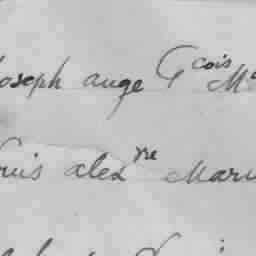 oseph ange Gcois M
uis alexre Marie